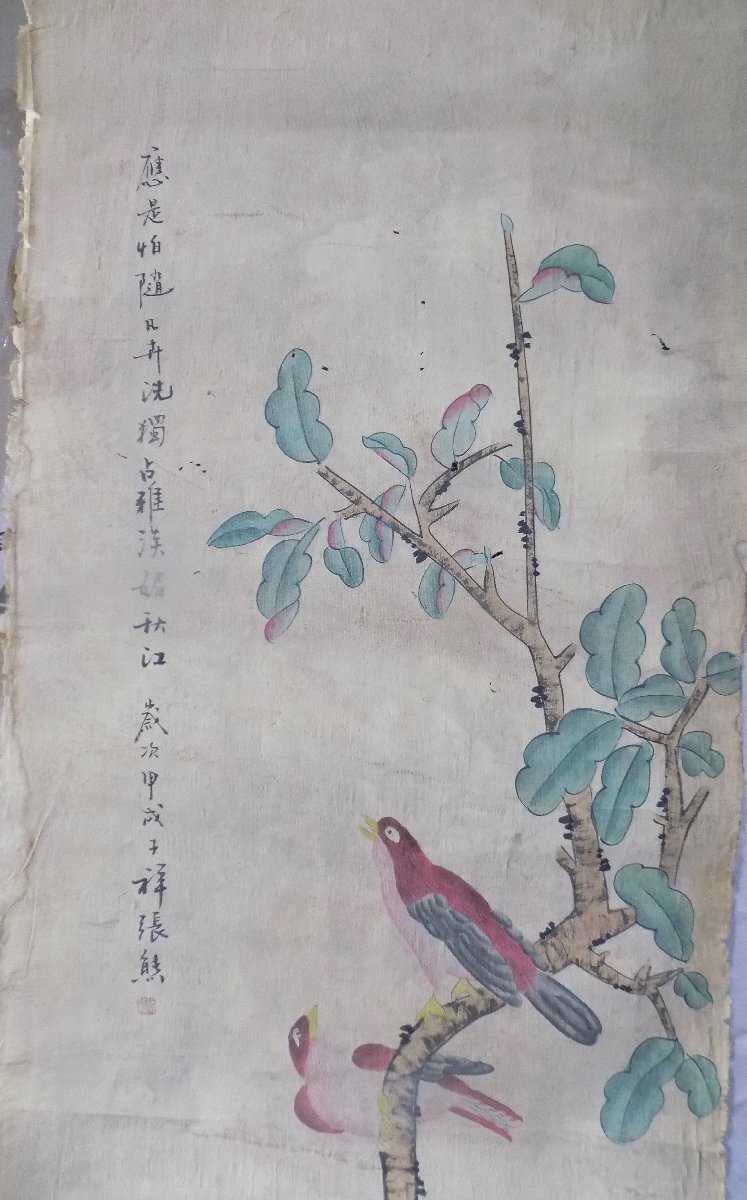 應是怕隨凡卉洗獨占雅淡媚秋江 歲次甲戌子祥張熊